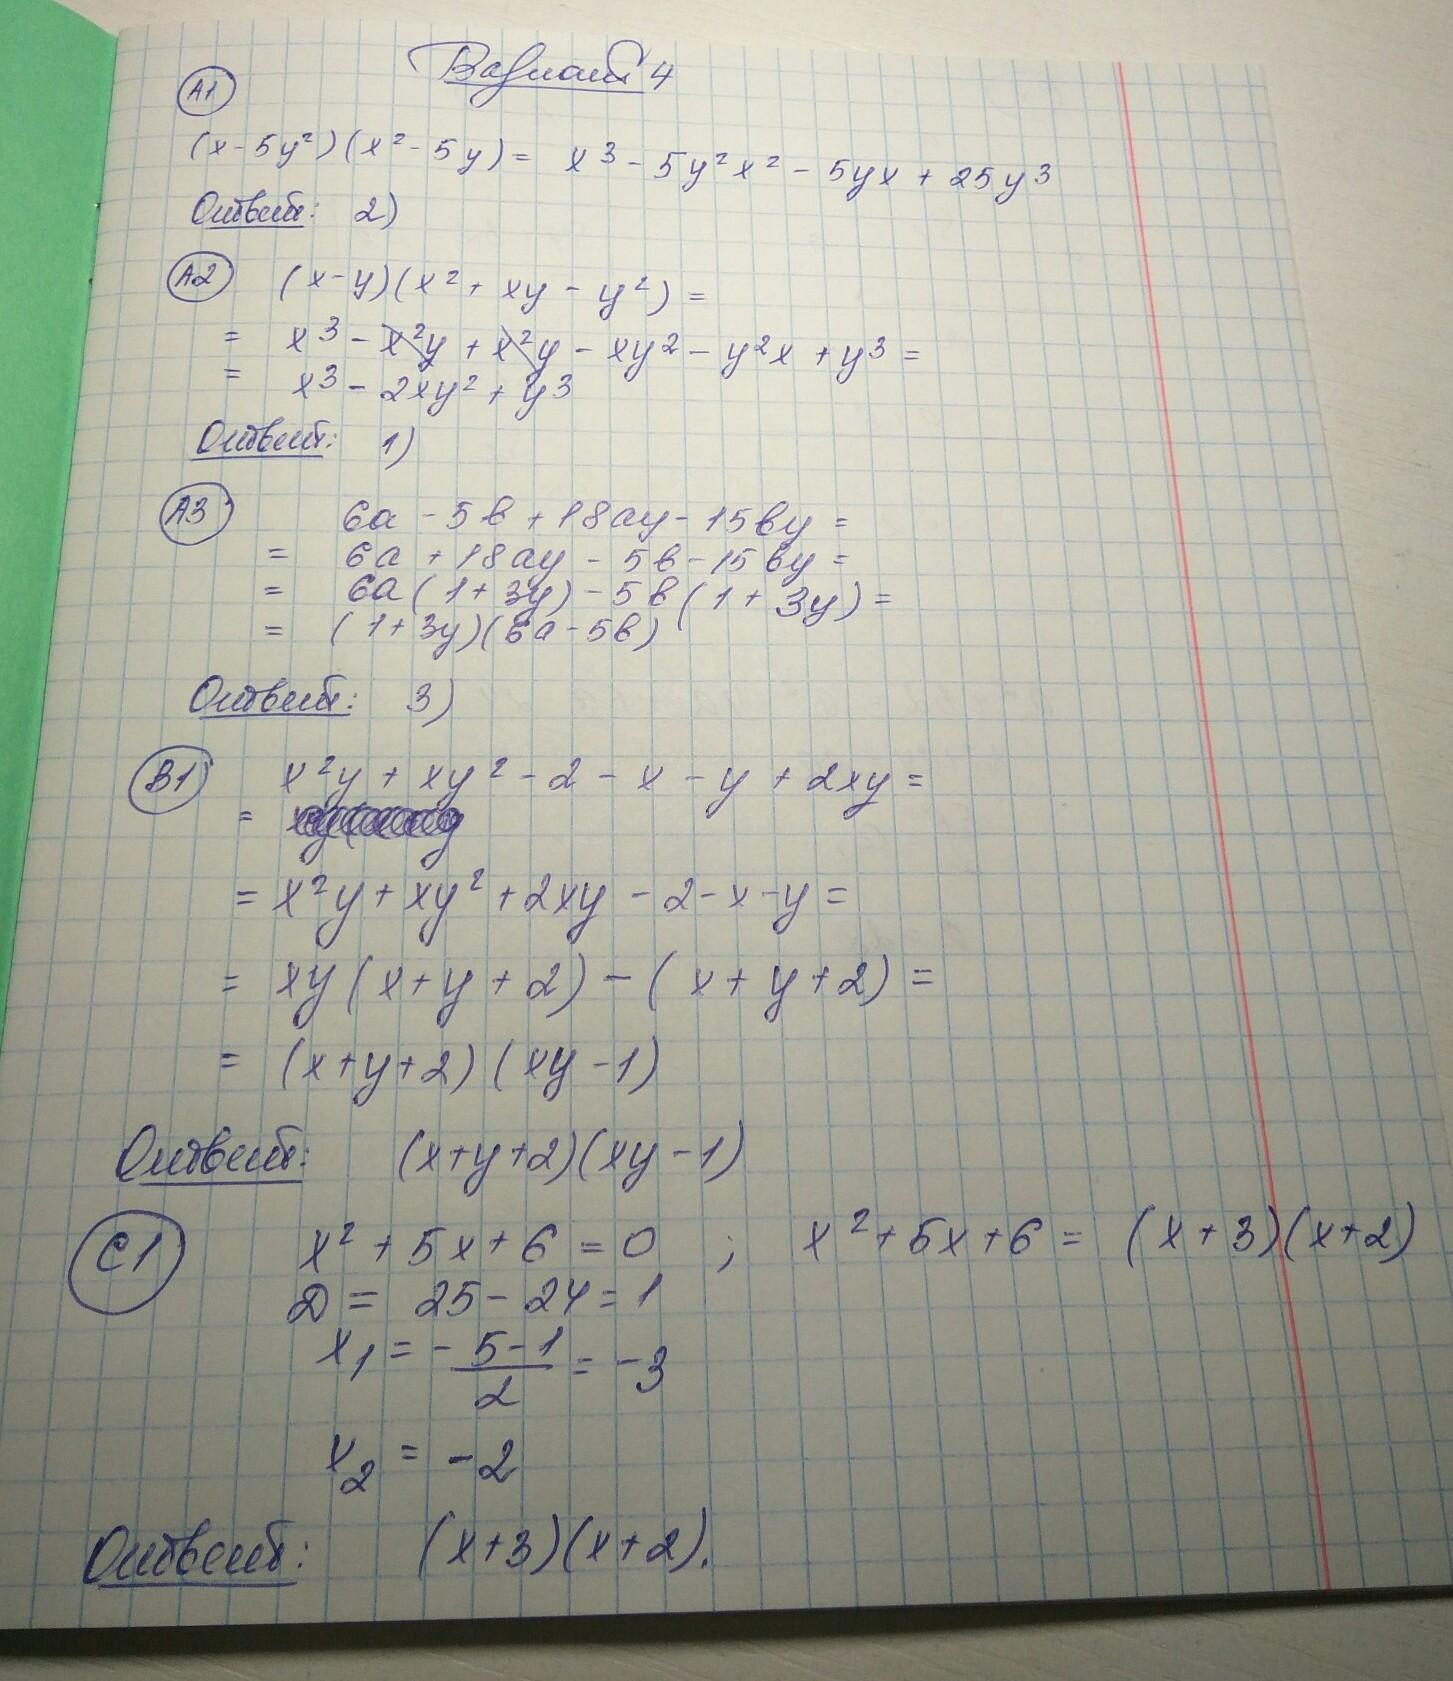 Вариант 4
А1
(x - 5y²)(x² - 5y) = x³ - 5y²x² - 5yx + 25y³
Ответ: 2)
А2 (x - y)(x² + xy - y²) =
= x³ - x²y + x²y - xy² - y²x + y³ =
= x³ - 2xy² + y³
Ответ: 1)
А3 6a - 5в + 18ay - 15вy =
= 6a + 18ay - 5в - 15вy =
= 6a(1 + 3y) - 5в(1 + 3y) =
= (1 + 3y)(6a - 5в)
Ответ: 3)
В1 x²y + xy² - 2 - x - y + 2xy =
=
= x²y + xy² + 2xy - 2 - x - y =
= xy(x + y + 2) - (x + y + 2) =
= (x + y + 2)(xy - 1)
Ответ: (x + y + 2)(xy - 1)
С1 x² + 5x + 6 = 0 ; x² + 5x + 6 = (x + 3)(x + 2)
D = 25 - 24 = 1
x₁ = -5-1/2 = -3
x₂ = -2
Ответ: (x + 3)(x + 2).